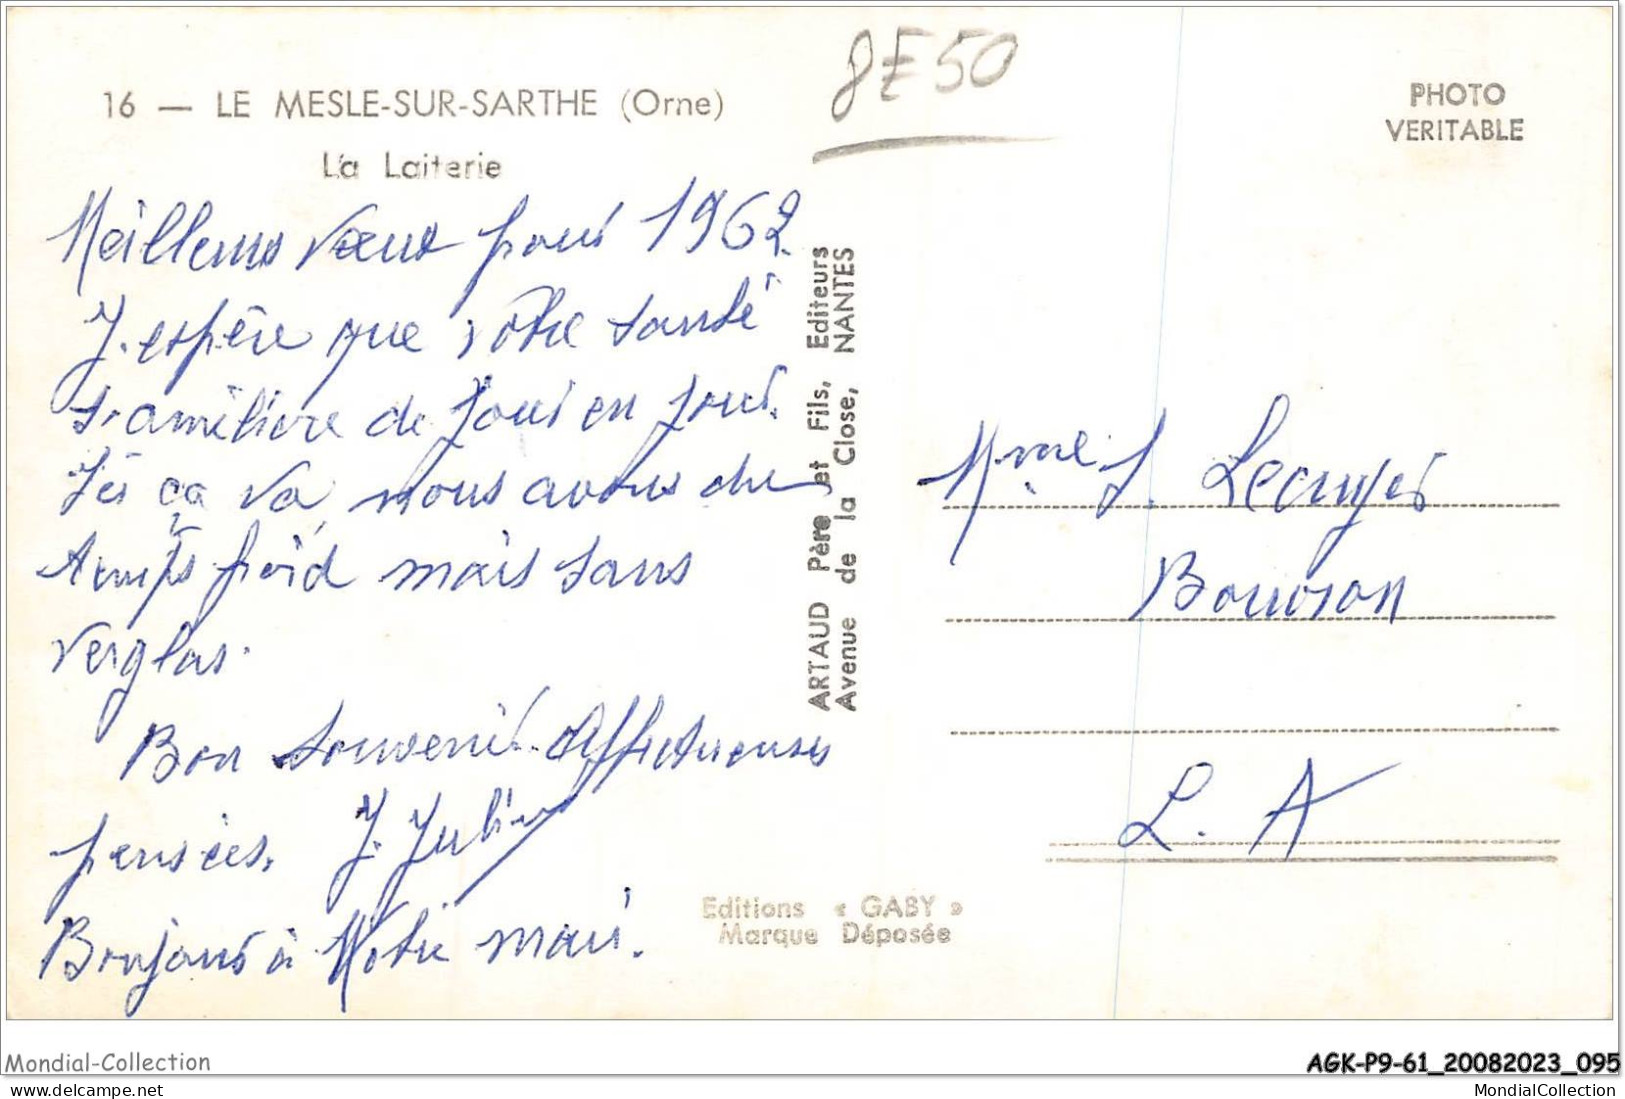 16 — LE MESLE-SUR-SARTHE (Orne)
La Laiterie
8E50
PHOTO
VERITABLE
Meilleurs Vœux pour 1962.
J. espère que votre santé
s'améliore de jour en jour.
Ici ça va nous avons du
temps froid mais sans
verglas.
Bon souvenir. Affectueuses
pensées. J. Julien
Bonjour à Votre mari.
ARTAUD Père et Fils, Editeurs
Avenue de la Close, NANTES
Mme J. Lecuyer
L. A
Editions « GABY »
Marque Déposée
Mondial-Collection
AGK-P9-61_20082023_095
www.delcampe.net
MondialCollection